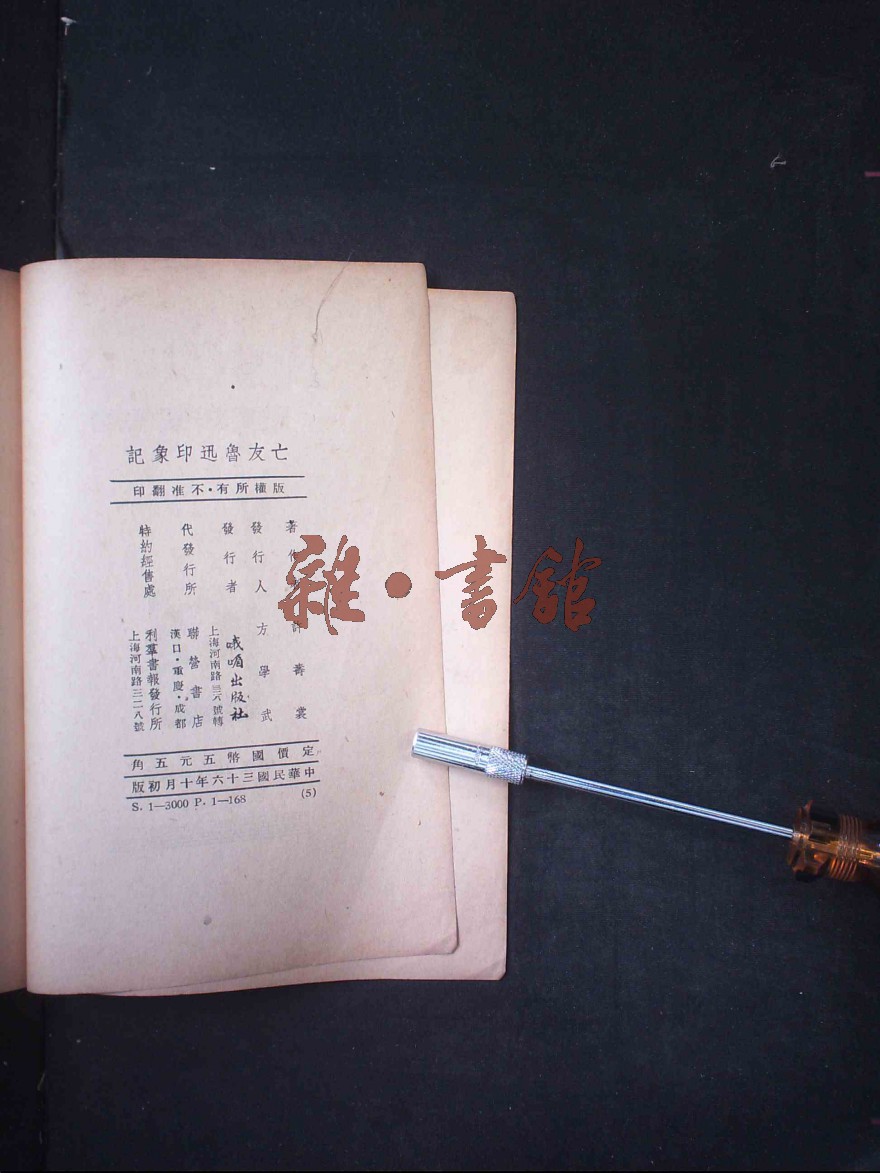 亡友魯迅印象記
版權所有・不准翻印
著作
許壽裳
發行人
方學武
發行者
峨嵋出版社
上海河南路三二八號轉
代發行所
聯營書店
漢口・重慶・成都
特約經售處
利羣書報發行所
上海河南路三二八號
定價國幣五元五角
中華民國三十六年十月初版
S. 1—3000 P. 1—168 (5)
雜・書館